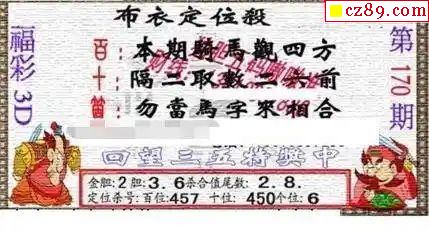 cz89.com
布衣定位殺
福彩3D
第170期
百: 本期騎馬觀四方
十: 隔二取數二六前
個: 勿當馬字來相合
回望三五將獎中
金胆:2胆:3.6杀合值尾数:2.8.
定位杀号:百位:457 十位:450个位:6